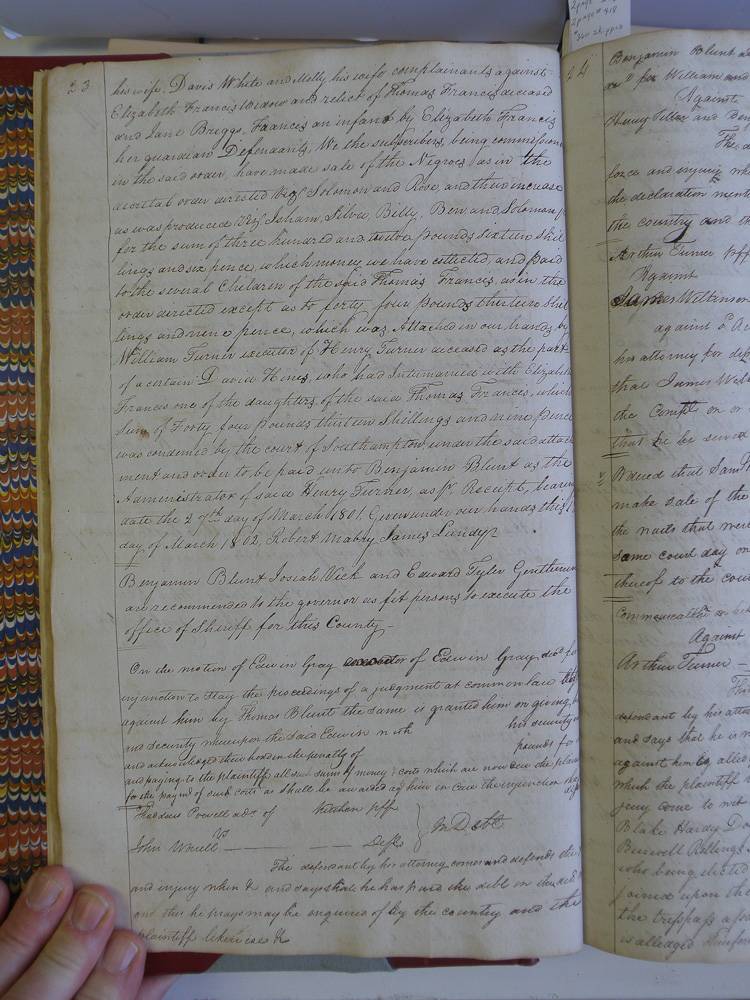 23
his wife, Davis White and Molly his wife complainants against
Elizabeth Francis widow and relict of Thomas Francis deceased
and Jane Briggs Frances an infant by Elizabeth Francis
her guardian Defendants, We the subscribers, being commissione
in the said order have made sale of the Negroes as in the
decretal order directed Viz Solomon and Rose, and their increase
as was produced Viz Isham, Silva, Billy, Ben and Solomon,
for the sum of three hundred and twelve pounds sixteen shil
lings and six pence, which money we have collected, and paid
to the several Children of the said Thomas Francis, as in the
order directed except as to forty four pounds thirteen Shil
lings and nine pence, which was Attached in our hands by
William Turner executor of Henry Turner deceased as the part
of a certain David Hines, who had Intermarried with Elizabeth
Francis one of the daughters of the said Thomas Francis, which
Sum of Forty four pounds thirteen Shillings and nine pence
was condemned by the court of Southampton under the said attach
ment and order to be paid unto Benjamin Blunt as the
Administrator of said Henry Turner, as pr. Receipt, bearing
date the 27th day of March 1801. Given under our hands this
day of March 1802, Robert Mabry James Lundy
Benjamin Blunt Josiah Vick and Edward Tyler Gentlemen
are recommended to the governor as fit persons to execute the
office of Sheriff for this County
On the motion of Edwin Gray of Edwin Gray, decd. for
injunction to stay the proceedings of a judgment at common law
against him by Thomas Blunt the same is granted him on giving
security whereupon the said Edwin with his security
and acknowledged their bond in the penalty of pounds for
and paying to the plaintiff all such sums of money & costs which are now due the plain
for the paymt of such costs as shall be awarded agt him in case the injunction
Thaddeus Powell adr of Kitchen pff
Vs In Debt
John Worrell Deft
The defendant by his attorney comes and defends the
and injury when & and says that he has paid the debt in the
and this he prays may be enquired of by the country and the
plaintiff likewise &
24
Benjamin Blunt
for William and
Against
Henry
The
force and injury wh
the declaration ment
the country and th
Arthur Turner pff
Against
James Wilkinson
against
his attorney for
that James Wil
the Complt on or
that he be served
Ordered that Sam
make sale of the
the
same court day on
thereof to the cou
Commonwealth
Against
Arthur Turner
Th
defendant by his atto
and says that he is n
against him by alleg
which the plaintiff
jury came to wit
Blake Hardy
Burwell Rollings
who being elected
joined upon the
the trespass afor
is alledged